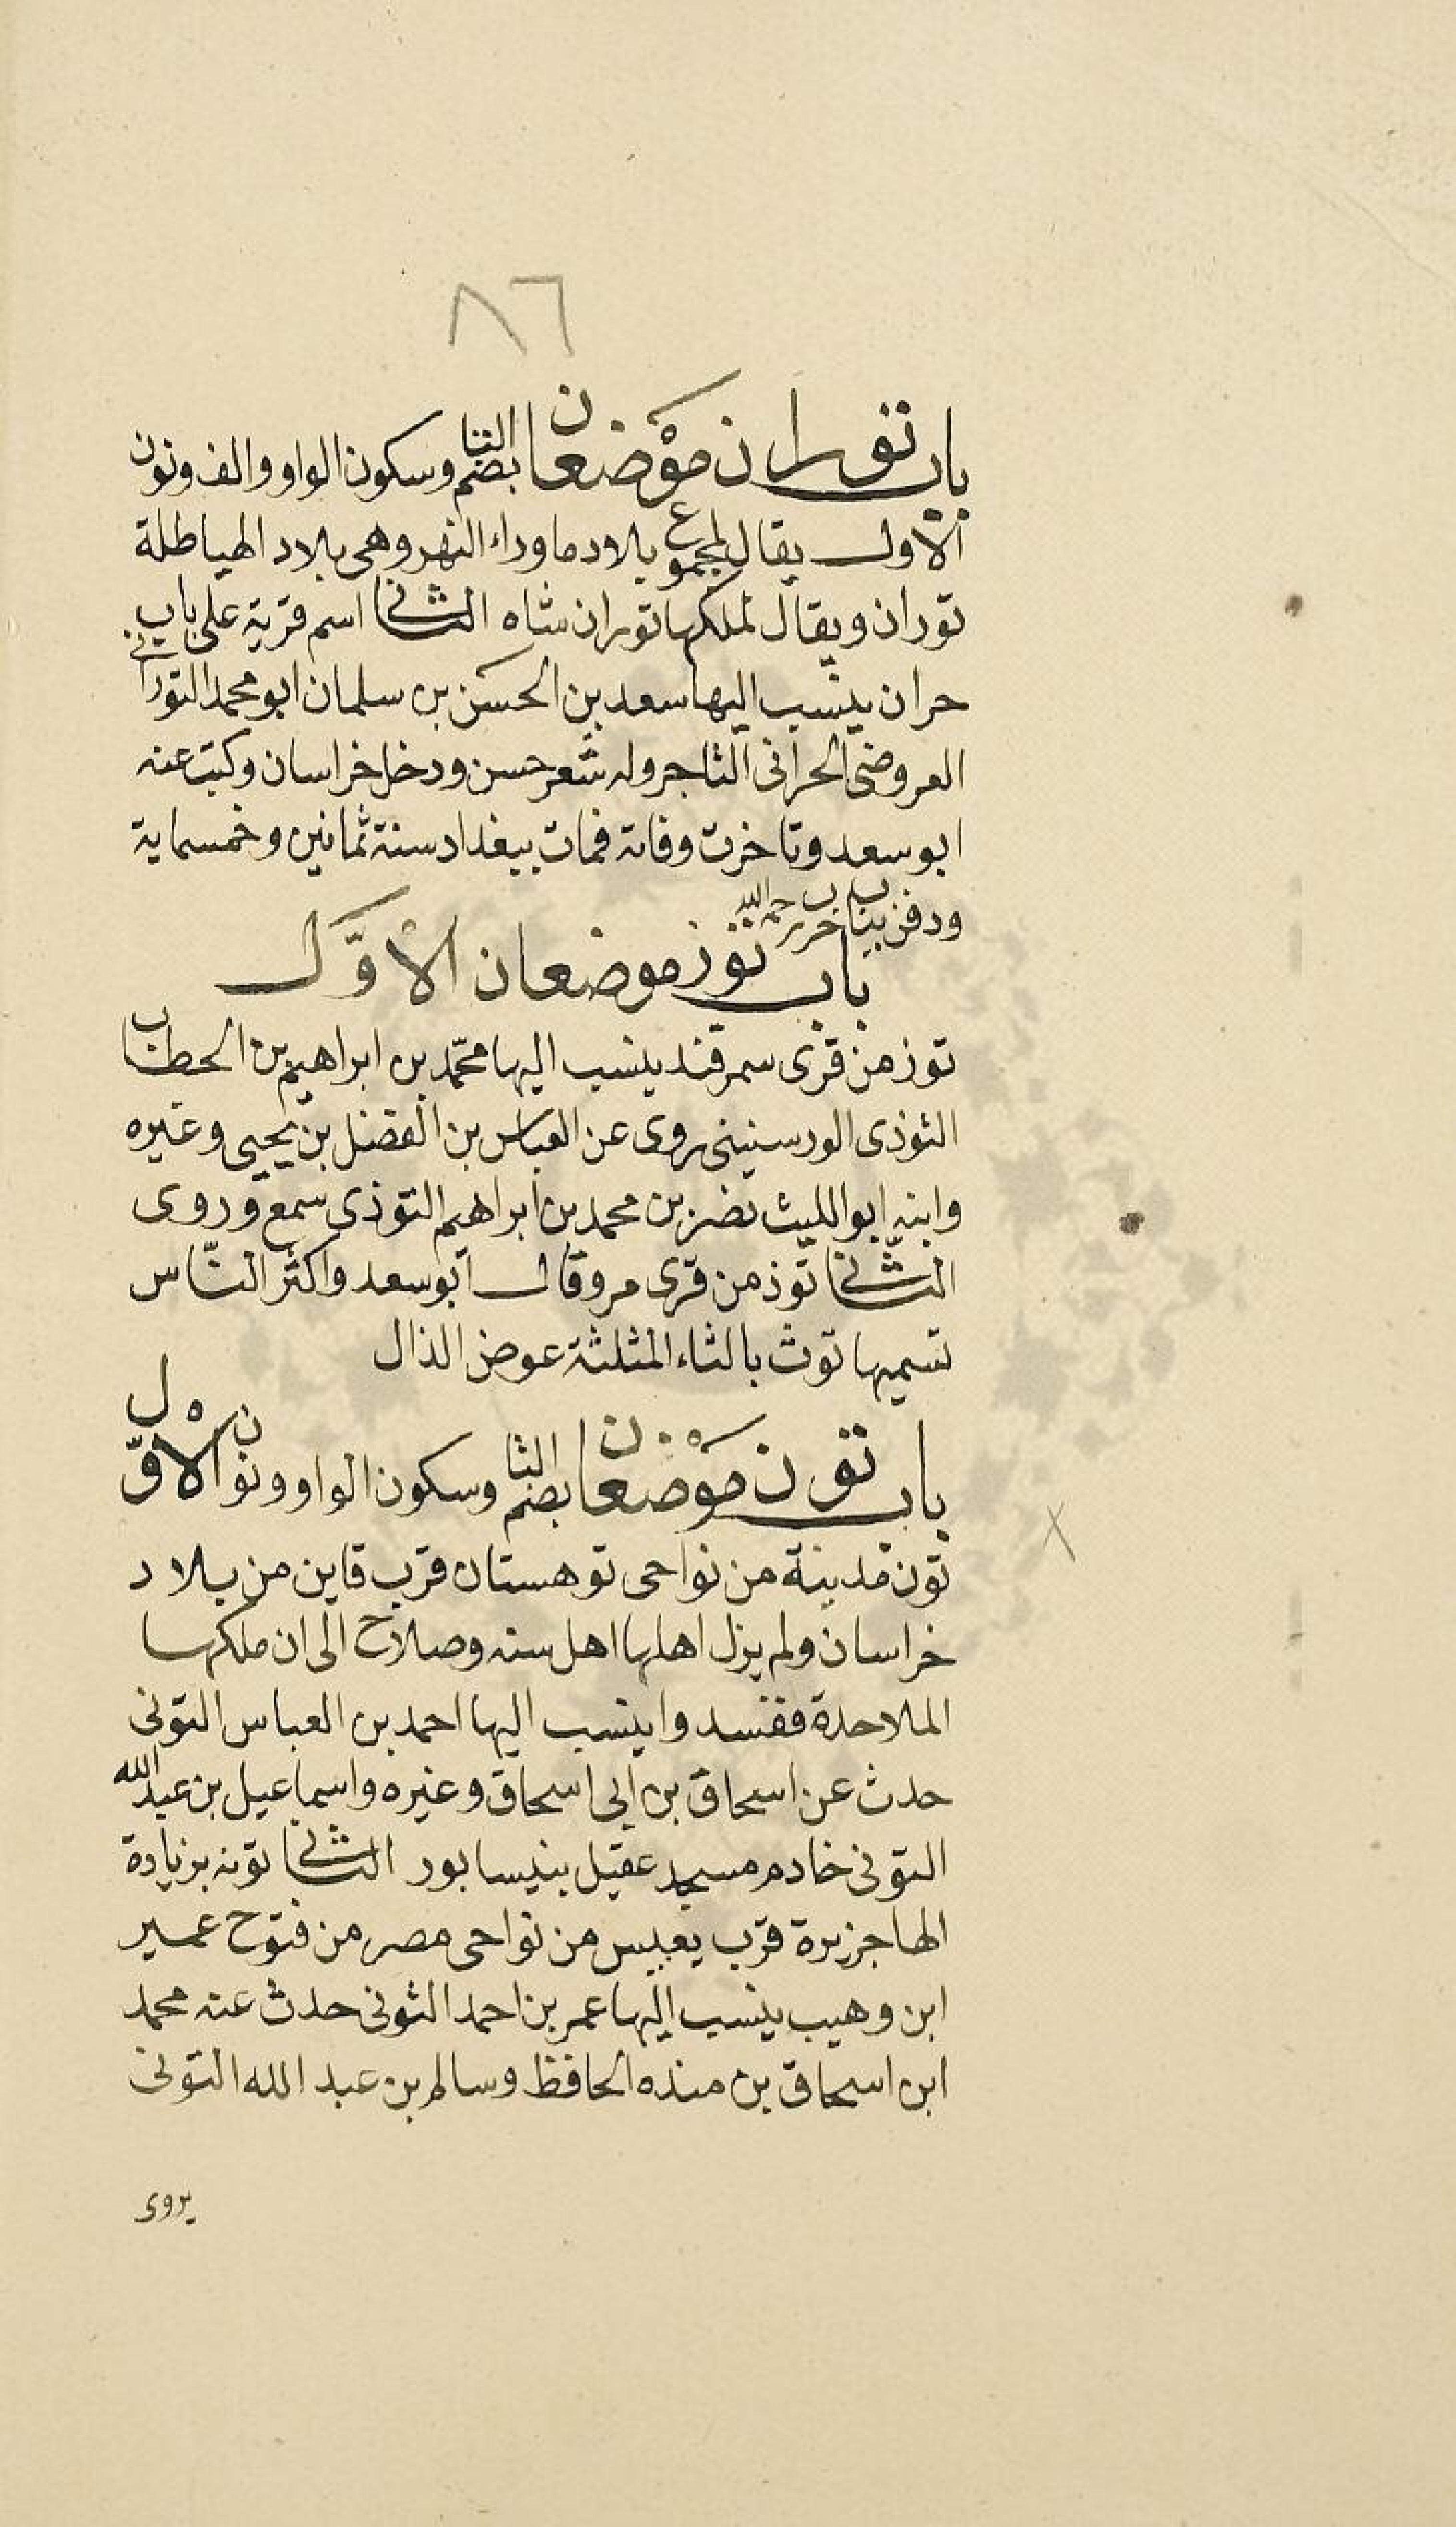 ٨٦
باب توران موضعان بضم التا وسكون الواو والف ونون
الاول يقال لمجموع بلاد ما وراء النهر وهى بلاد الهياطلة
توران ويقال لملكها توران شاه الثانى اسم قرية على باب
حران ينسب اليها سعد بن الحسن بن سلمان ابو محمد التورانى
العروضى الحرانى التاجر وله شعر حسن ودخل خراسان وكتب عنه
ابو سعد وتاخرت وفاته فمات ببغداد سنة ثمانين وخمسماية
ودفن بباب حرب رحمه الله
باب توز موضعان الاوّل
توز من قرى سمرقند ينسب اليها محمّد بن ابراهيم بن الخطاب
التوذى الورسنينى روى عن العباس بن الفضل بن يحيى وغيره
وابنه ابو الليث نضر بن محمد بن ابراهيم التوذى سمع وروى
الثانى توذ من قرى مرو قال ابو سعد واكثر النّاس
تسميها توث بالثاء المثلثة عوض الذال
باب تون موضعان بضم التا وسكون الواو ونون الاوّل
تون مدينة من نواحى توهستان قرب قاين من بلاد
خراسان ولم يزل اهلها اهل سنه وصلاح الى ان ملكها
الملاحدة ففسدوا ينسب اليها احمد بن العباس التونى
حدث عن اسحاق بن ابى اسحاق وغيره واسماعيل بن عبد الله
التونى خادم مسجد عقيل بنيسابور الثانى تونه بزيادة
الها جزيرة قرب من نواحى مصر من فتوح عمير
ابن وهيب ينسب اليها عمر بن احمد التونى حدث عنه محمد
ابن اسحاق بن منده الحافظ وسالم بن عبد الله التونى
يروى